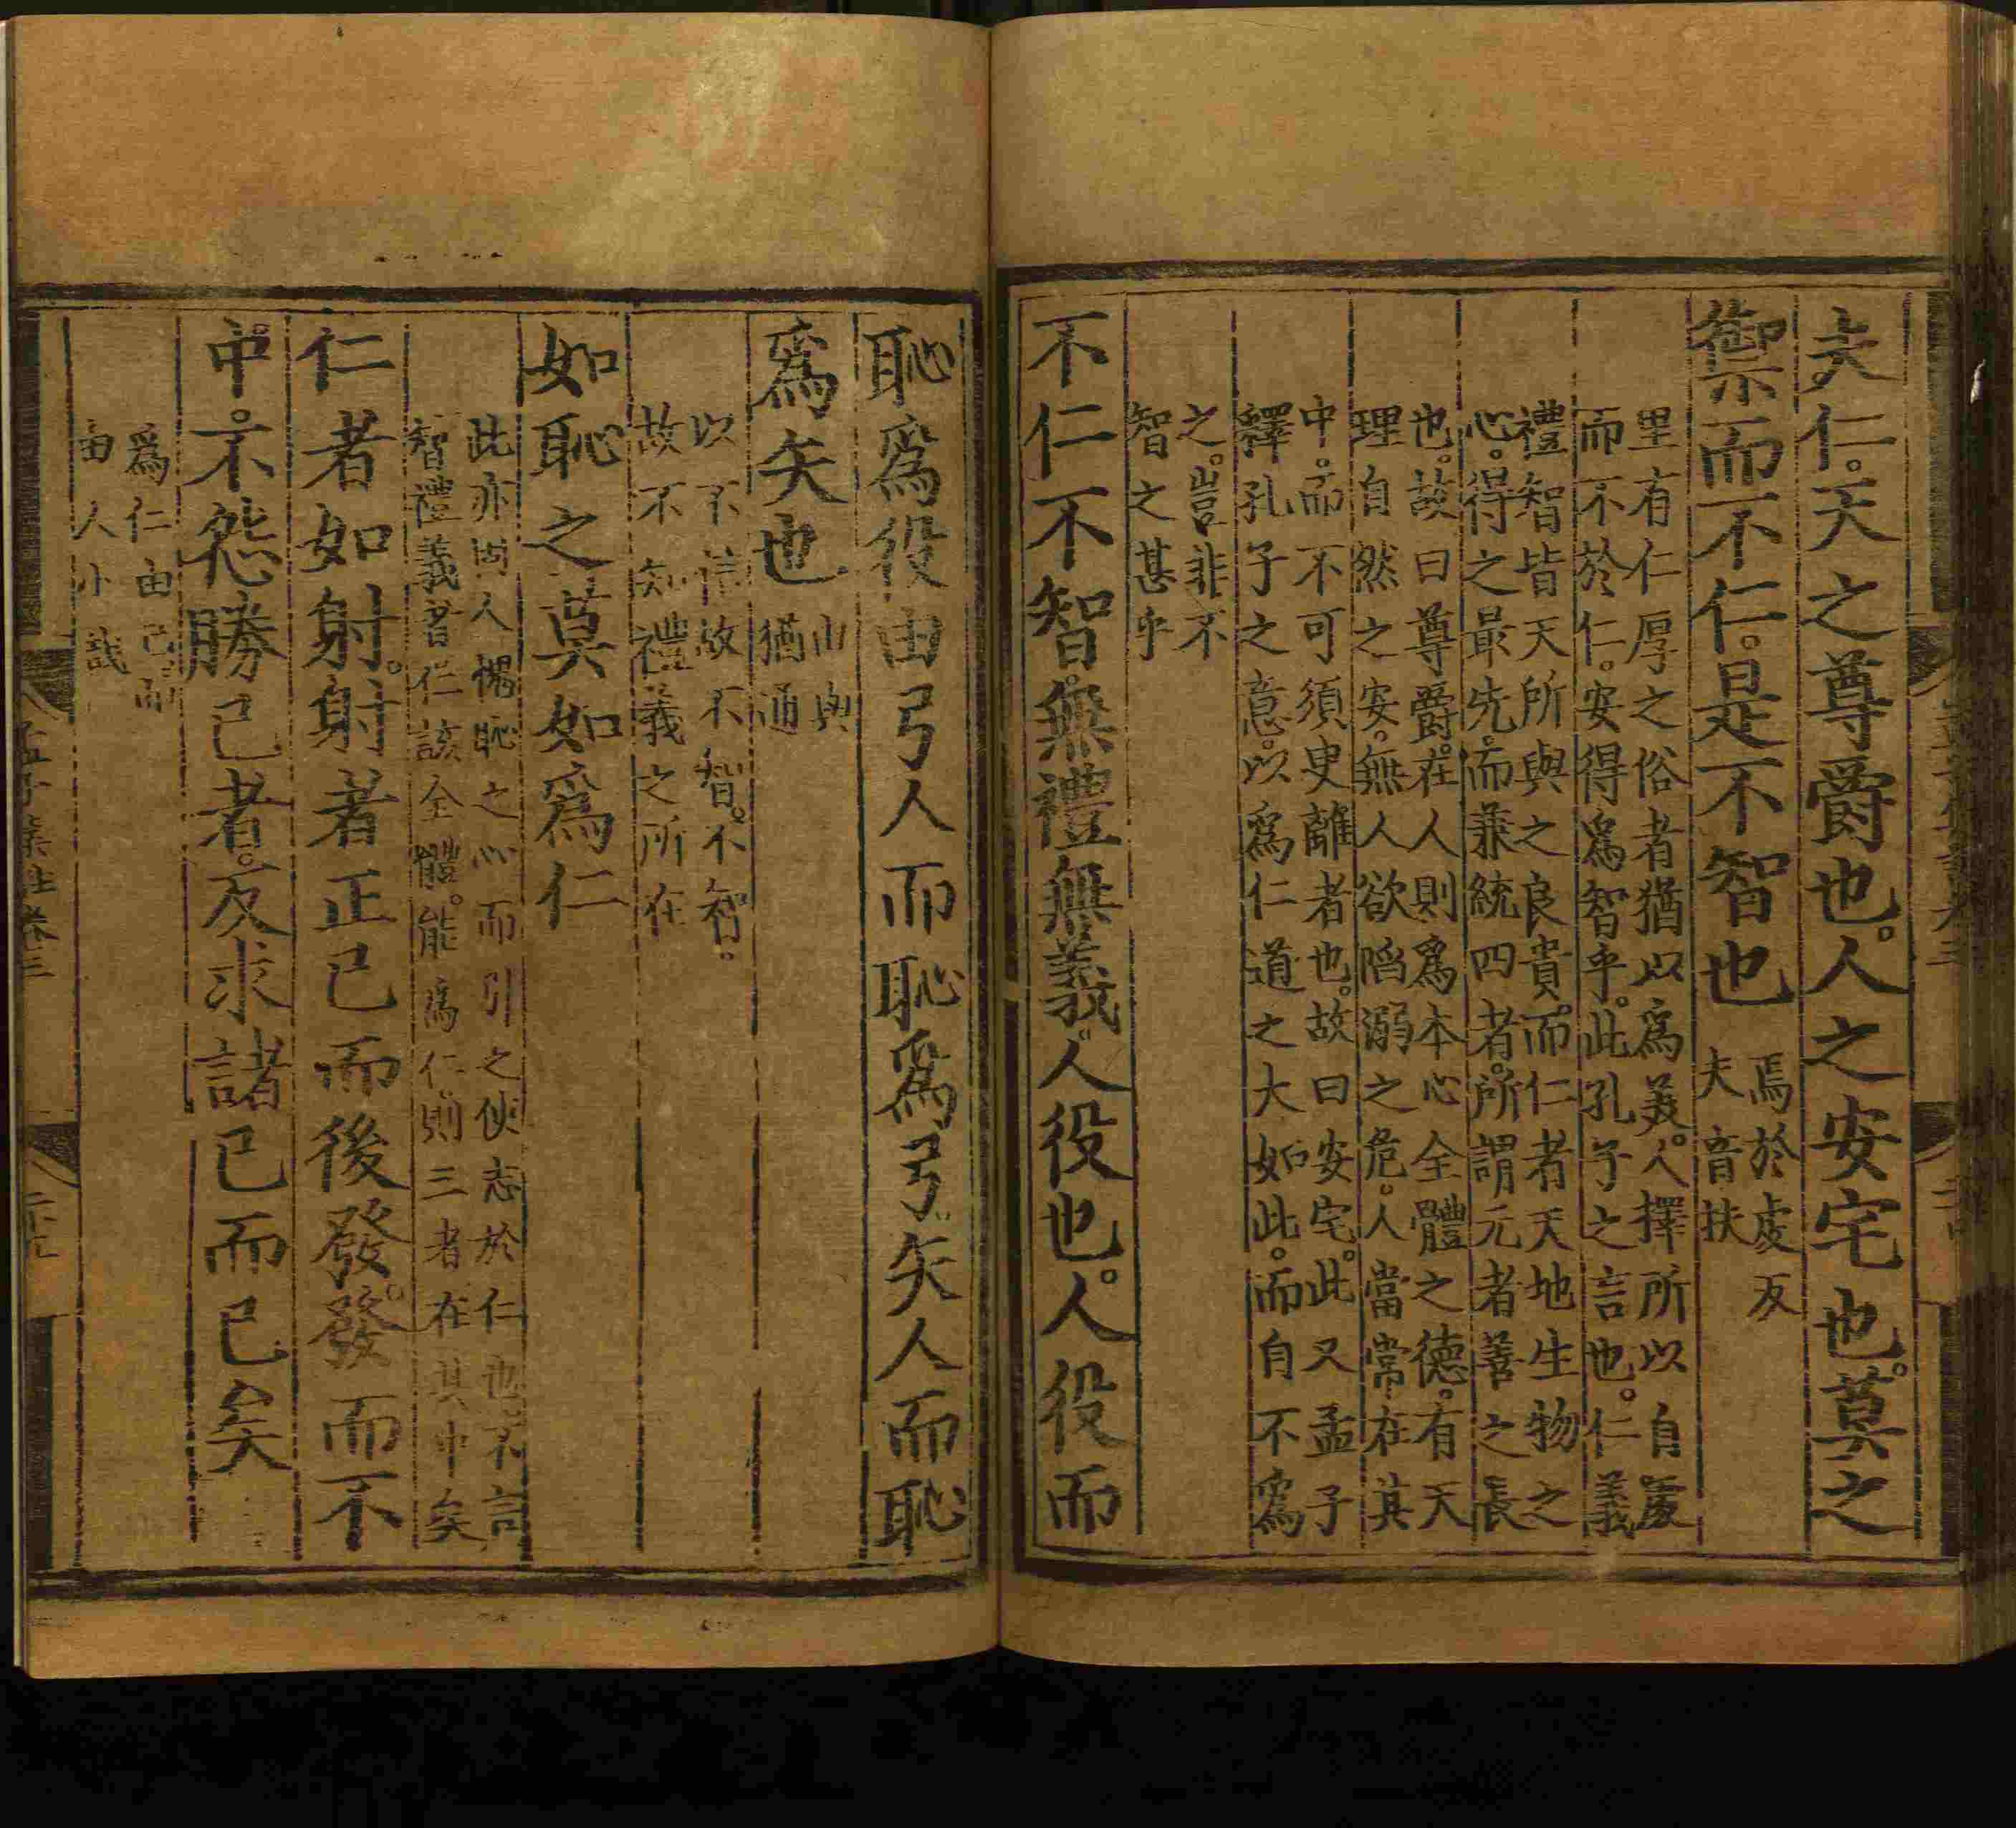 夫仁。天之尊爵也。人之安宅也。莫之
禦而不仁。是不智也
焉於虔反
夫音扶
里有仁厚之俗者猶以爲美。人擇所以自處
而不於仁。安得爲智乎。此孔子之言也。仁義
禮智皆天所與之良貴。而仁者天地生物之
心。得之最先。而兼統四者。所謂元者善之長
也。故曰尊爵。在人則爲本心全體之德。有天
理自然之安。無人欲陷溺之危。人當常在其
中。而不可須臾離者也。故曰安宅。此又孟子
釋孔子之意。以爲仁道之大如此。而自不爲
之。豈非不
智之甚乎
不仁不智。無禮無義。人役也。人役而
恥爲役由弓人而恥爲弓。矢人而恥
爲矢也
由與
猶通
以不仁故不智。不智。
故不知禮義之所在
如恥之莫如爲仁
此亦因人愧恥之心而引之使志於仁也。不言
智禮義者仁該全體。能爲仁。則三者在其中矣
仁者如射。射者正已而後發。發而不
中。不怨勝已者。反求諸已而已矣
爲仁由己。而
由人乎哉
孟子集註卷三